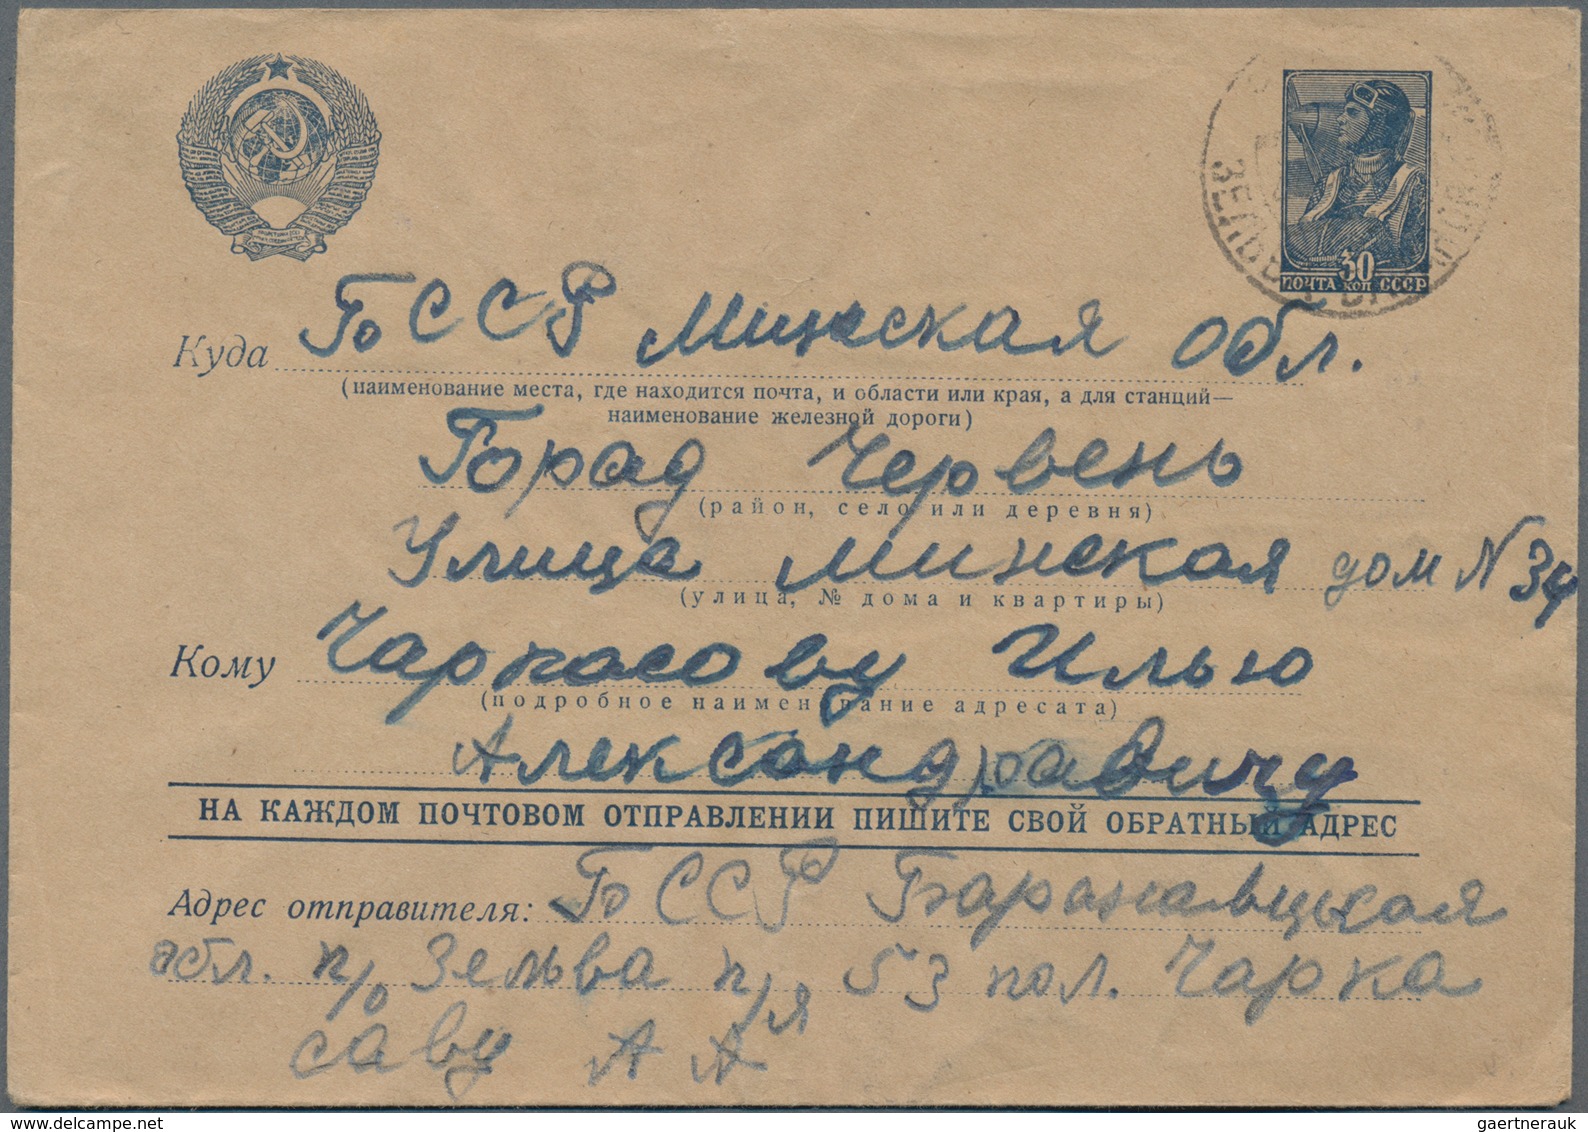 30
ПОЧТА КОП СССР
Куда БССР Минская обл.
(наименование места, где находится почта, и области или края, а для станций—
наименование железной дороги)
Горад Червень
(район, село или деревня)
Улица Минская дом N 34
(улица, № дома и квартиры)
Кому Чаркасову Илью
(подробное наименование адресата)
Александравичу
НА КАЖДОМ ПОЧТОВОМ ОТПРАВЛЕНИИ ПИШИТЕ СВОЙ ОБРАТНЫЙ АДРЕС
Адрес отправителя: БССР Баранавцкая
обл. п/о Зельва п/я 53 пол. Чарка
саву А А
gaertnerauk
delcampe.net